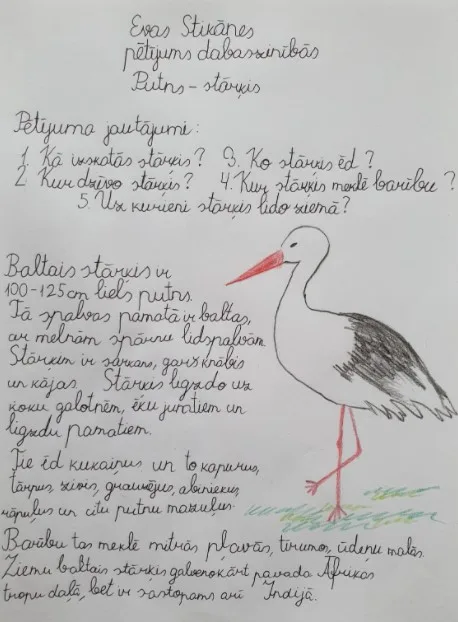 Evas Stikānes
pētījums dabaszinībās
Putns - stārķis
Pētījuma jautājumi:
1. Kā izskatās stārķis? 3. Ko stārķis ēd?
2. Kur dzīvo stārķis? 4. Kur stārķis meklē barību?
5. Uz kurieni stārķis lido ziemā?
Baltais stārķis ir
100-125cm liels putns.
Tā spalvas pamatā ir baltas,
ar melnām spārnu lidspalvām.
Stārķim ir sarkans, garš knābis
un kājas. Stārķis ligzdo uz
koku galotnēm, ēku jumtiem un
ligzdu pamatiem.
Tie ēd kukaiņus un to kāpurus,
tārpus, zivis, grauzējus, abiniekus,
rāpuļus un citu putnu mazuļus.
Barību tas meklē mitrās pļavās, tīrumos, ūdeņu malās.
Ziemu baltais stārķis galvenokārt pavada Āfrikas
tropu daļā, bet ir sastopams arī Indijā.